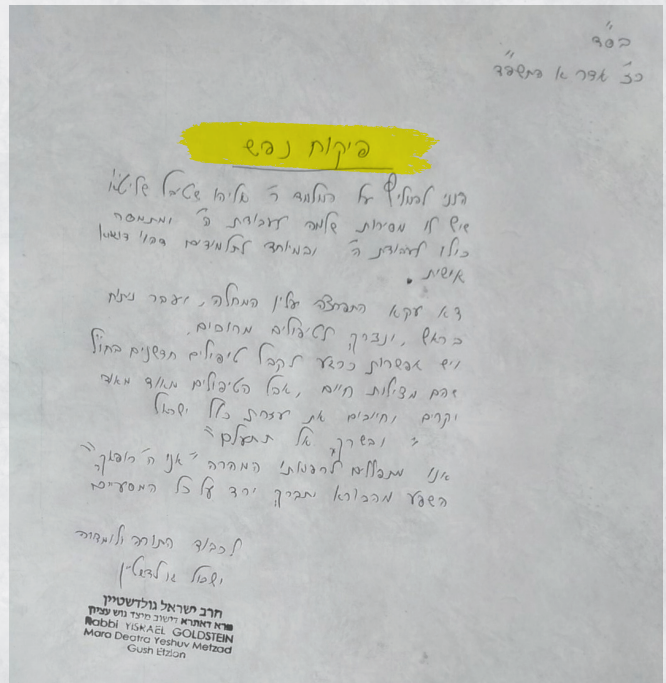 בס"ד
כז אדר א תשפ"ד
פיקוח נפש
הנני להמליץ על המלמד ה' אליהו שליט"א
שיש לו מסירות שלמה לעבודת ה' ומתמסר
כולו לעבודת ה' ובמיוחד לתלמידים
אישית.
דא עקא התפרצה עליו המחלה, ועבר ניתוח
בראש, ונצרך לטיפולים מרובים.
ויש אפשרות כרגע לקבל טיפולים חדשנים בחו"ל
שהם מצילות חיים, אבל הטיפולים מאוד מאוד
יקרים וחייבים את עזרת כלל ישראל
ומבשרך אל תתעלם"
אנו מתפללים לרפואתו המהרה "אני ה' רופאך"
השפע מהבורא יתברך ירד על כל המסייעים
לכבוד התורה ולומדיה
ישראל גולדשטיין
הרב ישראל גולדשטיין
מרא דאתרא לישוב מיצד גוש עציון
Rabbi YISRAEL GOLDSTEIN
Mara Deatra Yeshuv Metzad
Gush Etzion